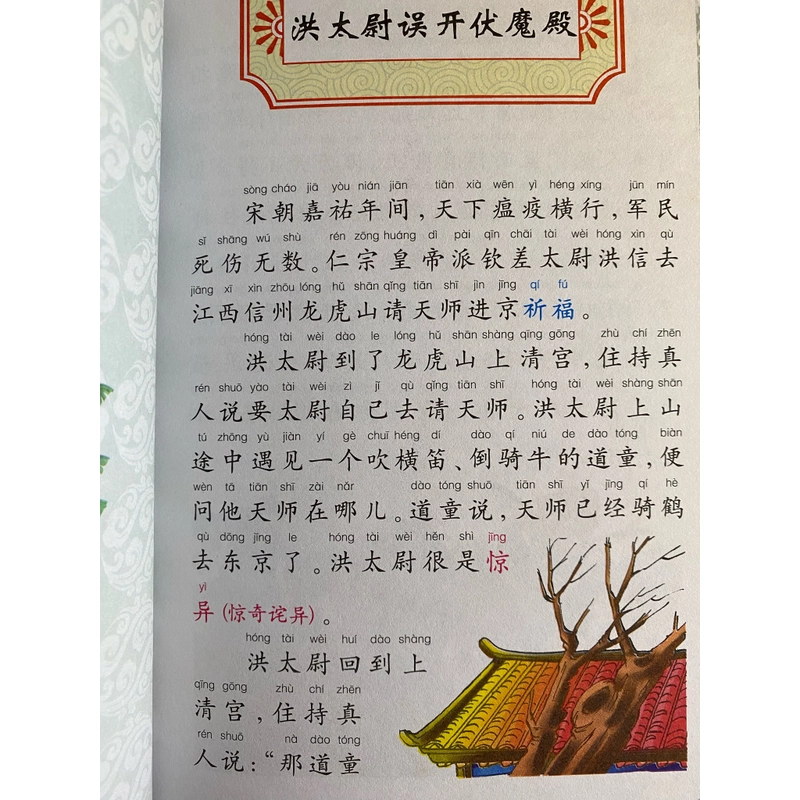 洪太尉误开伏魔殿
sòng cháo jiā yòu nián jiān tiān xià wēn yì héng xíng jūn mín
宋朝嘉祐年间，天下瘟疫横行，军民
sǐ shāng wú shù rén zōng huáng dì pài qīn chāi tài wèi hóng xìn qù
死伤无数。仁宗皇帝派钦差太尉洪信去
jiāng xī xìn zhōu lóng hǔ shān qǐng tiān shī jìn jīng qí fú
江西信州龙虎山请天师进京祈福。
hóng tài wèi dào le lóng hǔ shān shàng qīng gōng zhù chí zhēn
洪太尉到了龙虎山上清宫，住持真
rén shuō yào tài wèi zì jǐ qù qǐng tiān shī hóng tài wèi shàng shān
人说要太尉自己去请天师。洪太尉上山
tú zhōng yù jiàn yí gè chuī héng dí dào qí niú de dào tóng biàn
途中遇见一个吹横笛、倒骑牛的道童，便
wèn tā tiān shī zài nǎr dào tóng shuō tiān shī yǐ jīng qí hè
问他天师在哪儿。道童说，天师已经骑鹤
qù dōng jīng le hóng tài wèi hěn shì jīng
去东京了。洪太尉很是惊
yì
异(惊奇诧异)。
hóng tài wèi huí dào shàng
洪太尉回到上
qīng gōng zhù chí zhēn
清宫，住持真
rén shuō nà dào tóng
人说：“那道童